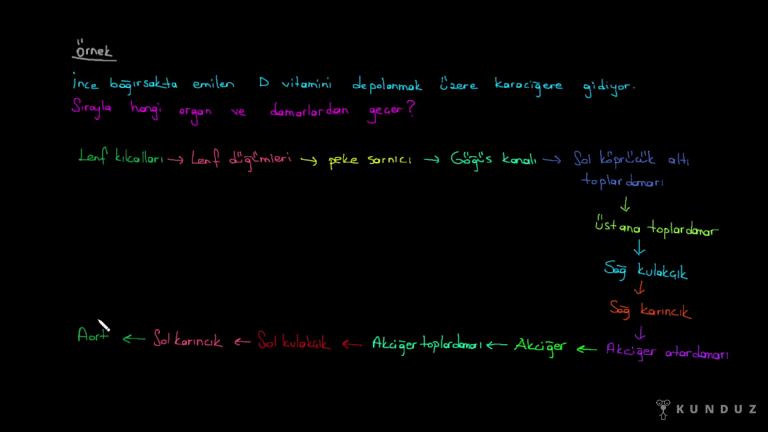 Örnek
İnce bağırsakta emilen D vitamini depolanmak üzere karaciğere gidiyor.
Sırayla hangi organ ve damarlardan geçer?
Lenf kılcalları → Lenf düğümleri → peke sarnıcı → Göğüs kanalı → Sol köprücük altı
toplardamarı
↓
üstana toplardamar
↓
Sağ kulakçık
↓
Sağ karıncık
↓
Aort ← Sol karıncık ← Sol kulakçık ← Akciğer toplardamarı ← Akciğer ← Akciğer atardamarı
KUNDUZ